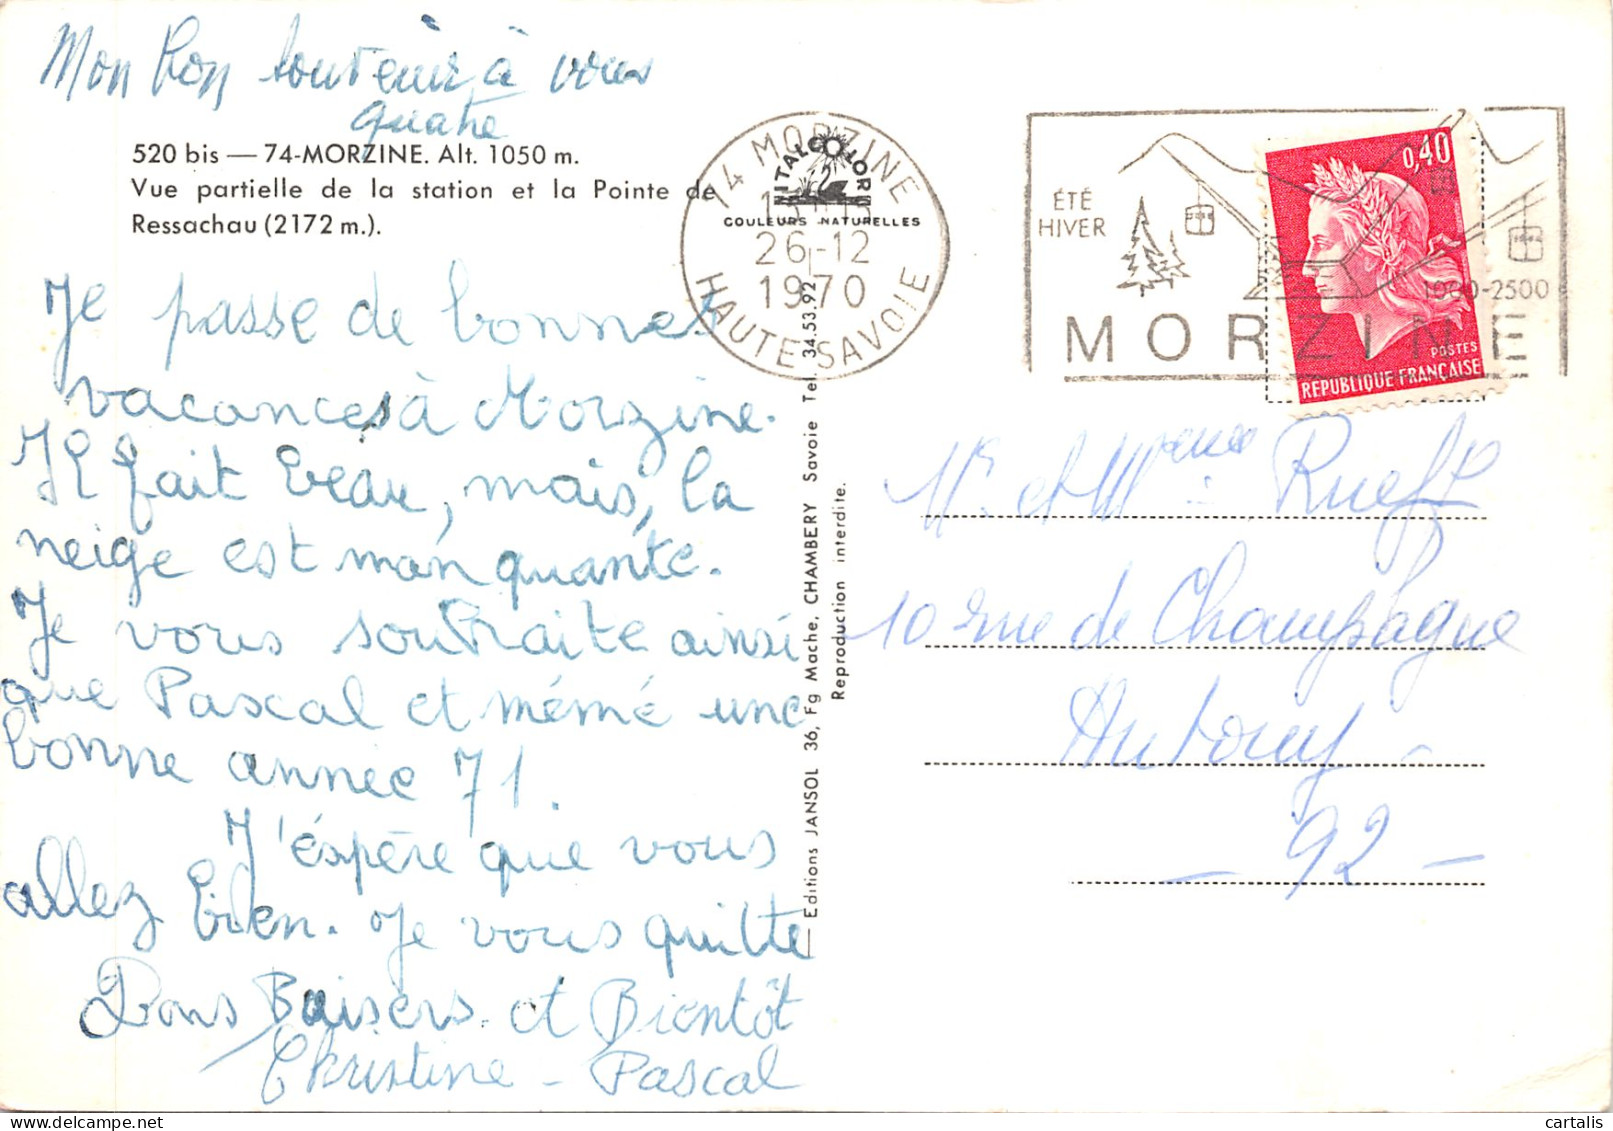 Mon bon souvenir à vous
quatre
520 bis — 74-MORZINE. Alt. 1050 m.
Vue partielle de la station et la Pointe de
Ressachau (2172 m.).
Je passe de bonnes
vacances à Morzine.
Il fait beau, mais, la
neige est manquante.
Je vous souhaite ainsi
que Pascal et mémé une
bonne année 71.
J'éspère que vous
allez bien. Je vous quitte
Bons Baisers et Bientôt
Christine - Pascal
74 MORZINE
26-12
1970
HAUTE-SAVOIE
ITALCOLOR
COULEURS NATURELLES
Editions JANSOL 36, Fg Mache, CHAMBERY Savoie Tel. 34.53.92
Reproduction interdite.
ÉTÉ
HIVER
1000-2500
MORZINE
0,40
POSTES
REPUBLIQUE FRANÇAISE
Mr et Mme Rueff
10 rue de Champagne
Antony -
- 92 -
cartalis